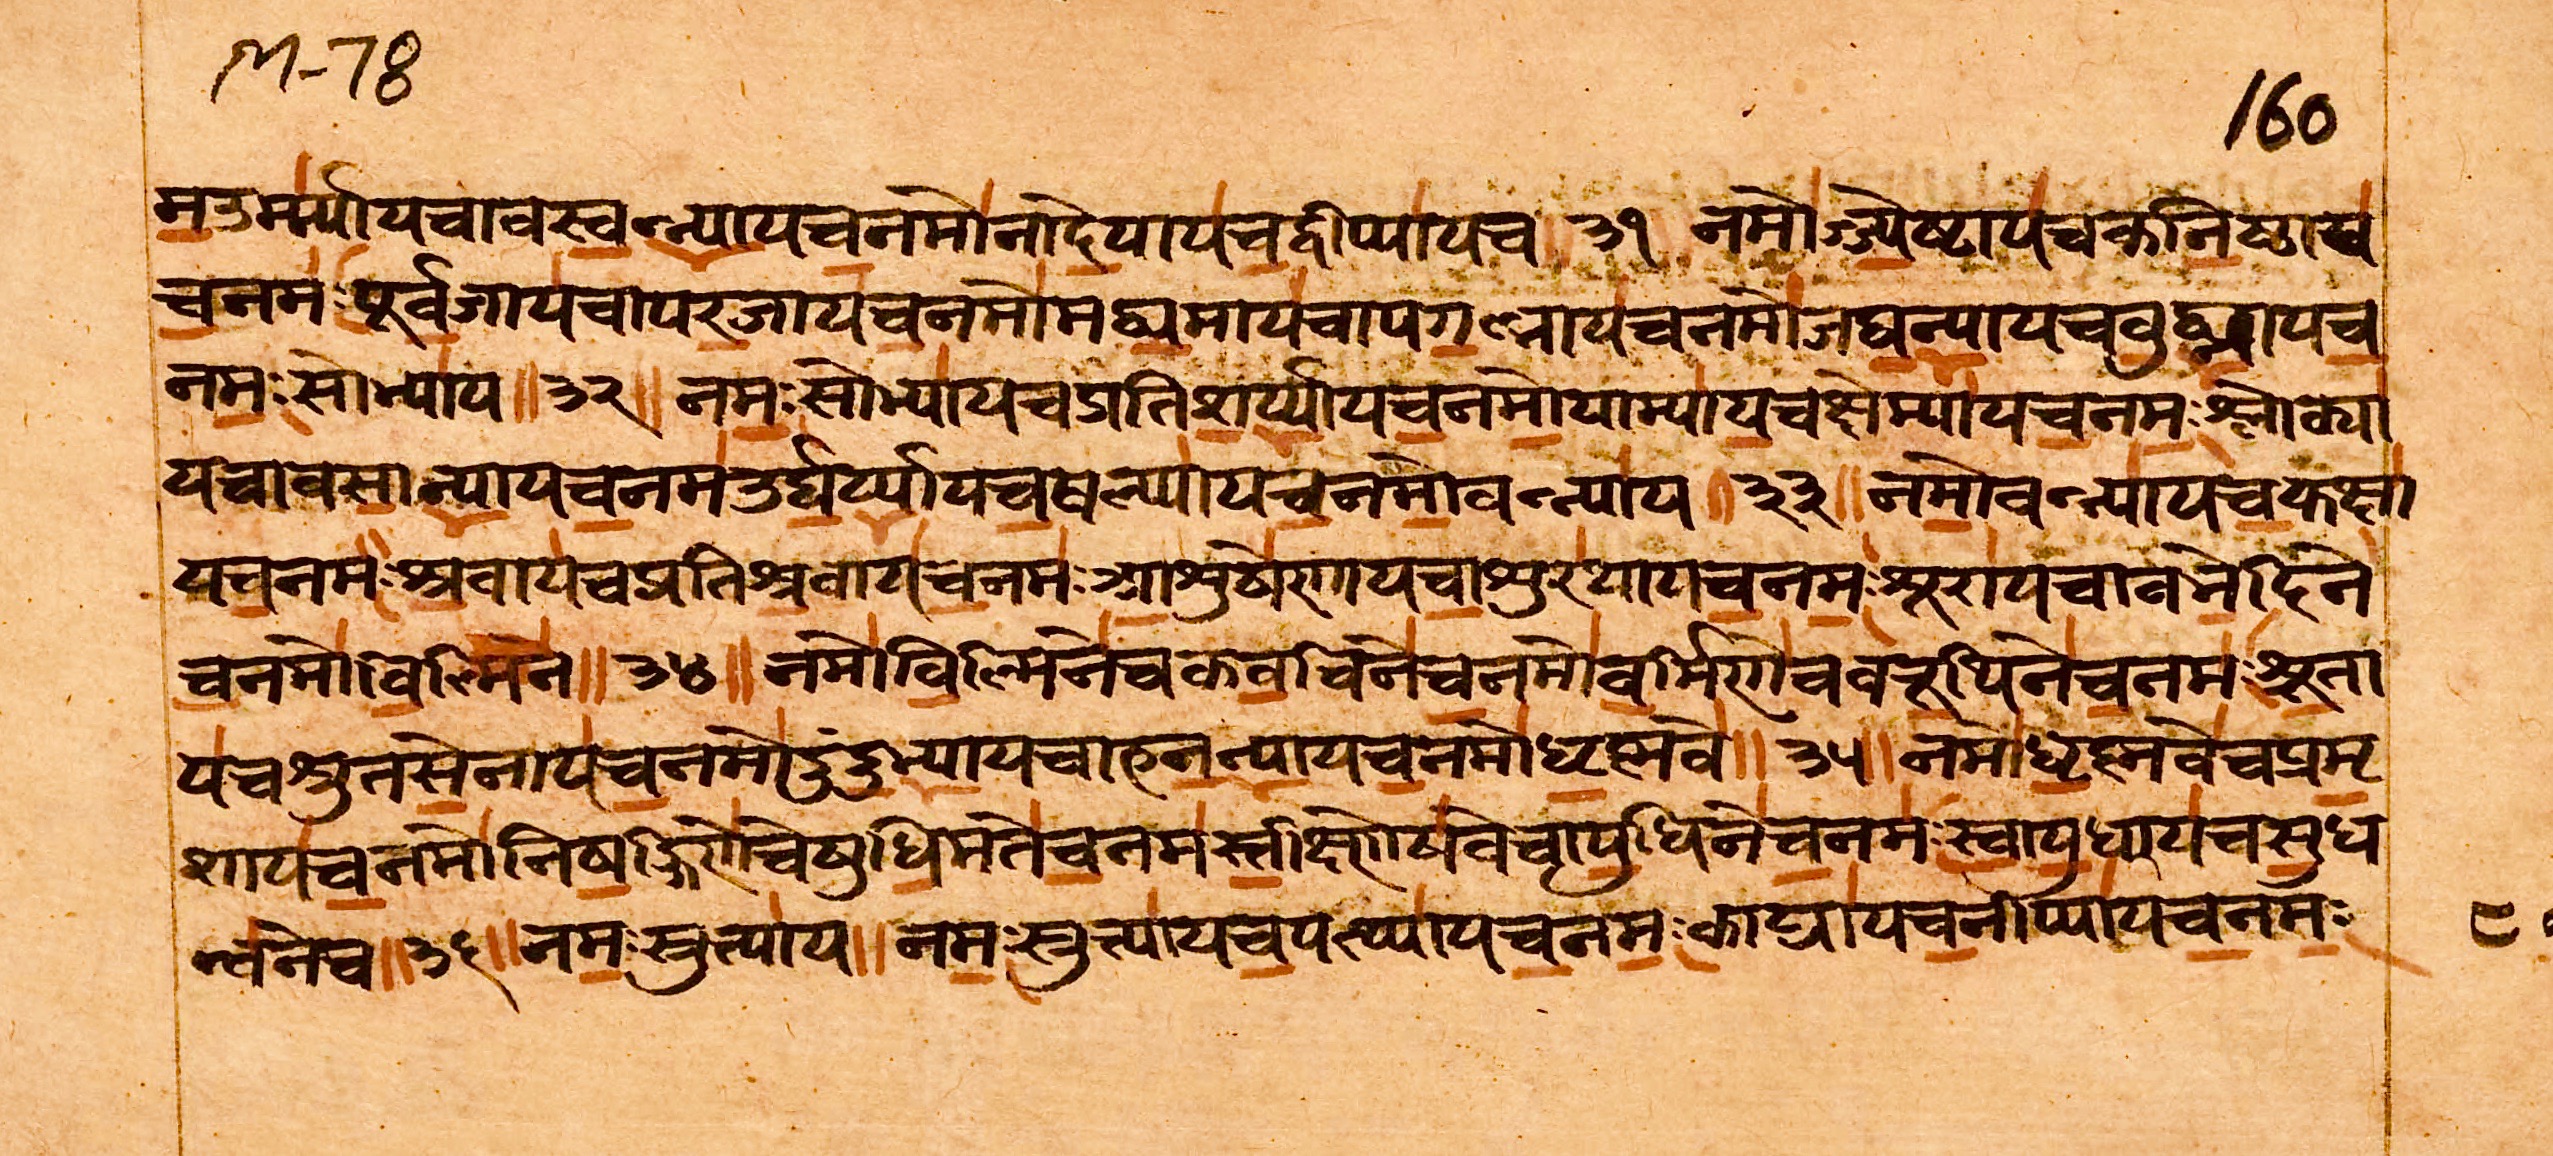 M-78
160
मऽऊर्म्यायचावस्वन्यायचनमोनादेयायचद्वीप्यायच ३१ नमोज्ज्येष्टायचकनिष्ठाय
चनमःपूर्वजायचापरजायचनमोमध्यमायचापगल्भायचनमोजघन्यायचवुद्ध्न्यायच
नमःसोभ्याय॥३२॥नमःसोभ्यायचप्रतिशर्य्यायचनमोयाम्यायचक्षेम्यायचनमःश्लोक्या
यचावसान्यायचनमउर्वर्य्यायचखल्यायचनमोवन्न्याय॥३३॥नमोवन्न्यायचकक्षा
यचनमःश्रवायचप्रतिश्रवायचनमःआशुषेणायचाशुरथायचनमःशूरायचावभेदिने
चनमोविल्मिने॥३४॥नमोविल्मिनेचकवचिनेचनमोवर्मिणेचवरूथिनेचनमःश्रुता
यचश्रुतसेनायचनमोदुंदुभ्यायचाहनन्यायचनमोधृष्णवे॥३५॥नमोधृष्णवेचप्रमृ
शायचनमोनिषङ्गिणेचेषुधिमतेचनमस्तीक्ष्णेषवेचायुधिनेचनमःस्वायुधायचसुध
न्वनेच॥३६॥नमःस्रुत्याय॥नमःस्रुत्यायचपत्थ्यायचनमःकाट्यायचनीप्यायचनमः